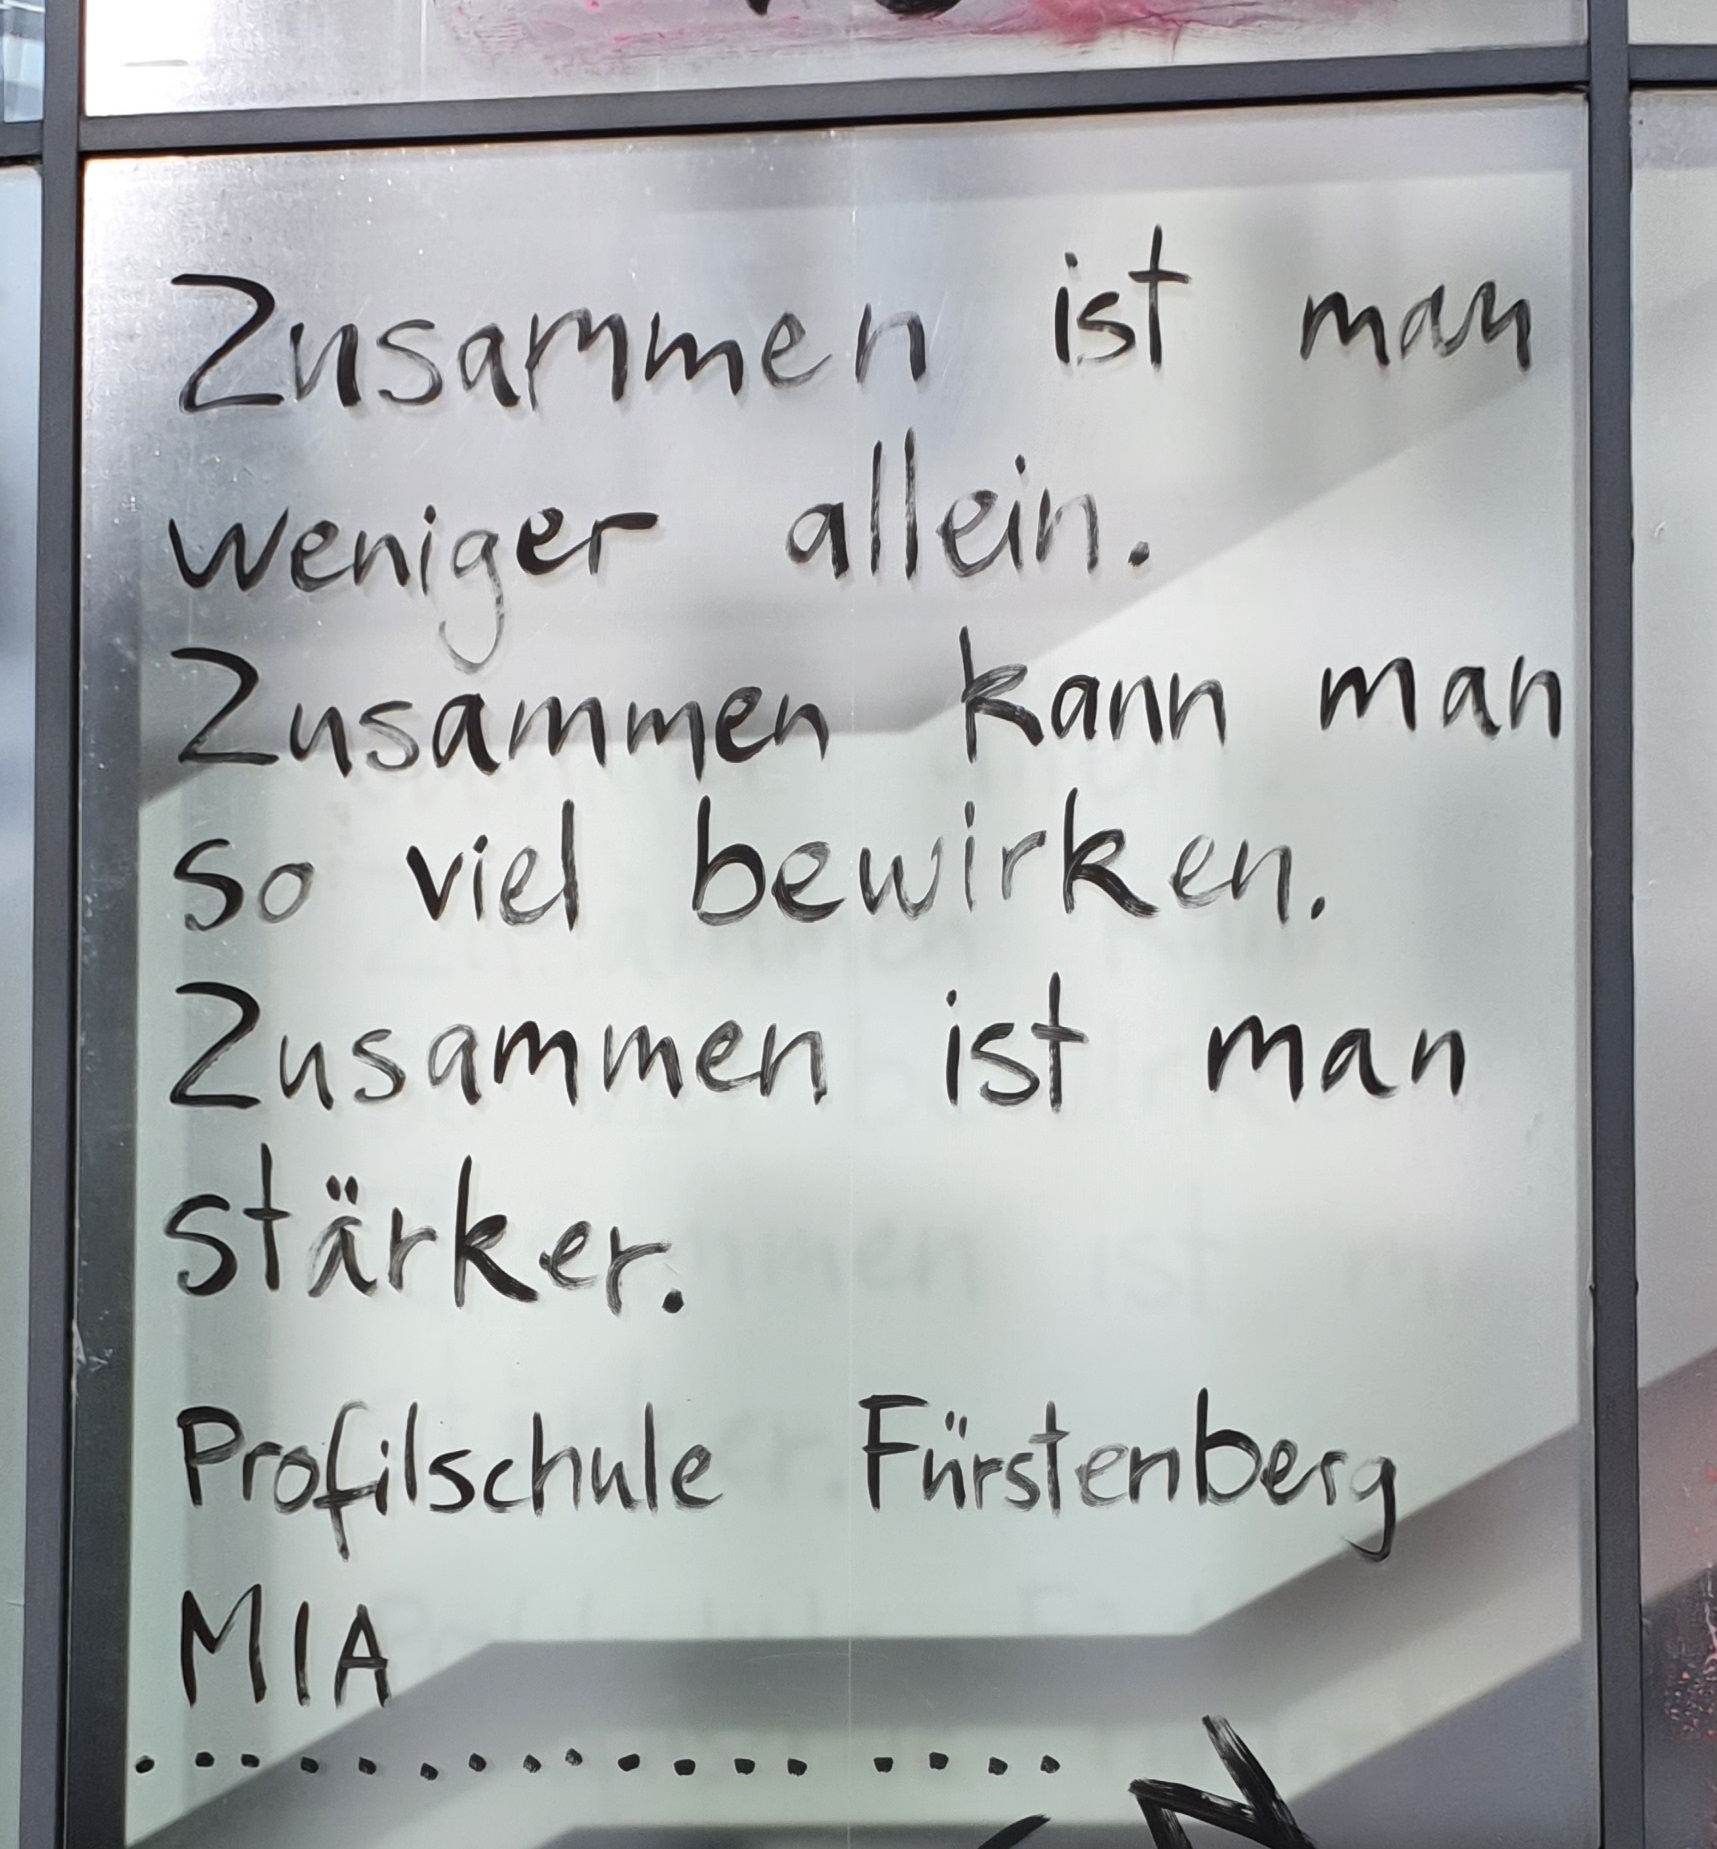 Zusammen ist man
weniger allein.
Zusammen kann man
so viel bewirken.
Zusammen ist man
stärker.
Profilschule Fürstenberg
MIA